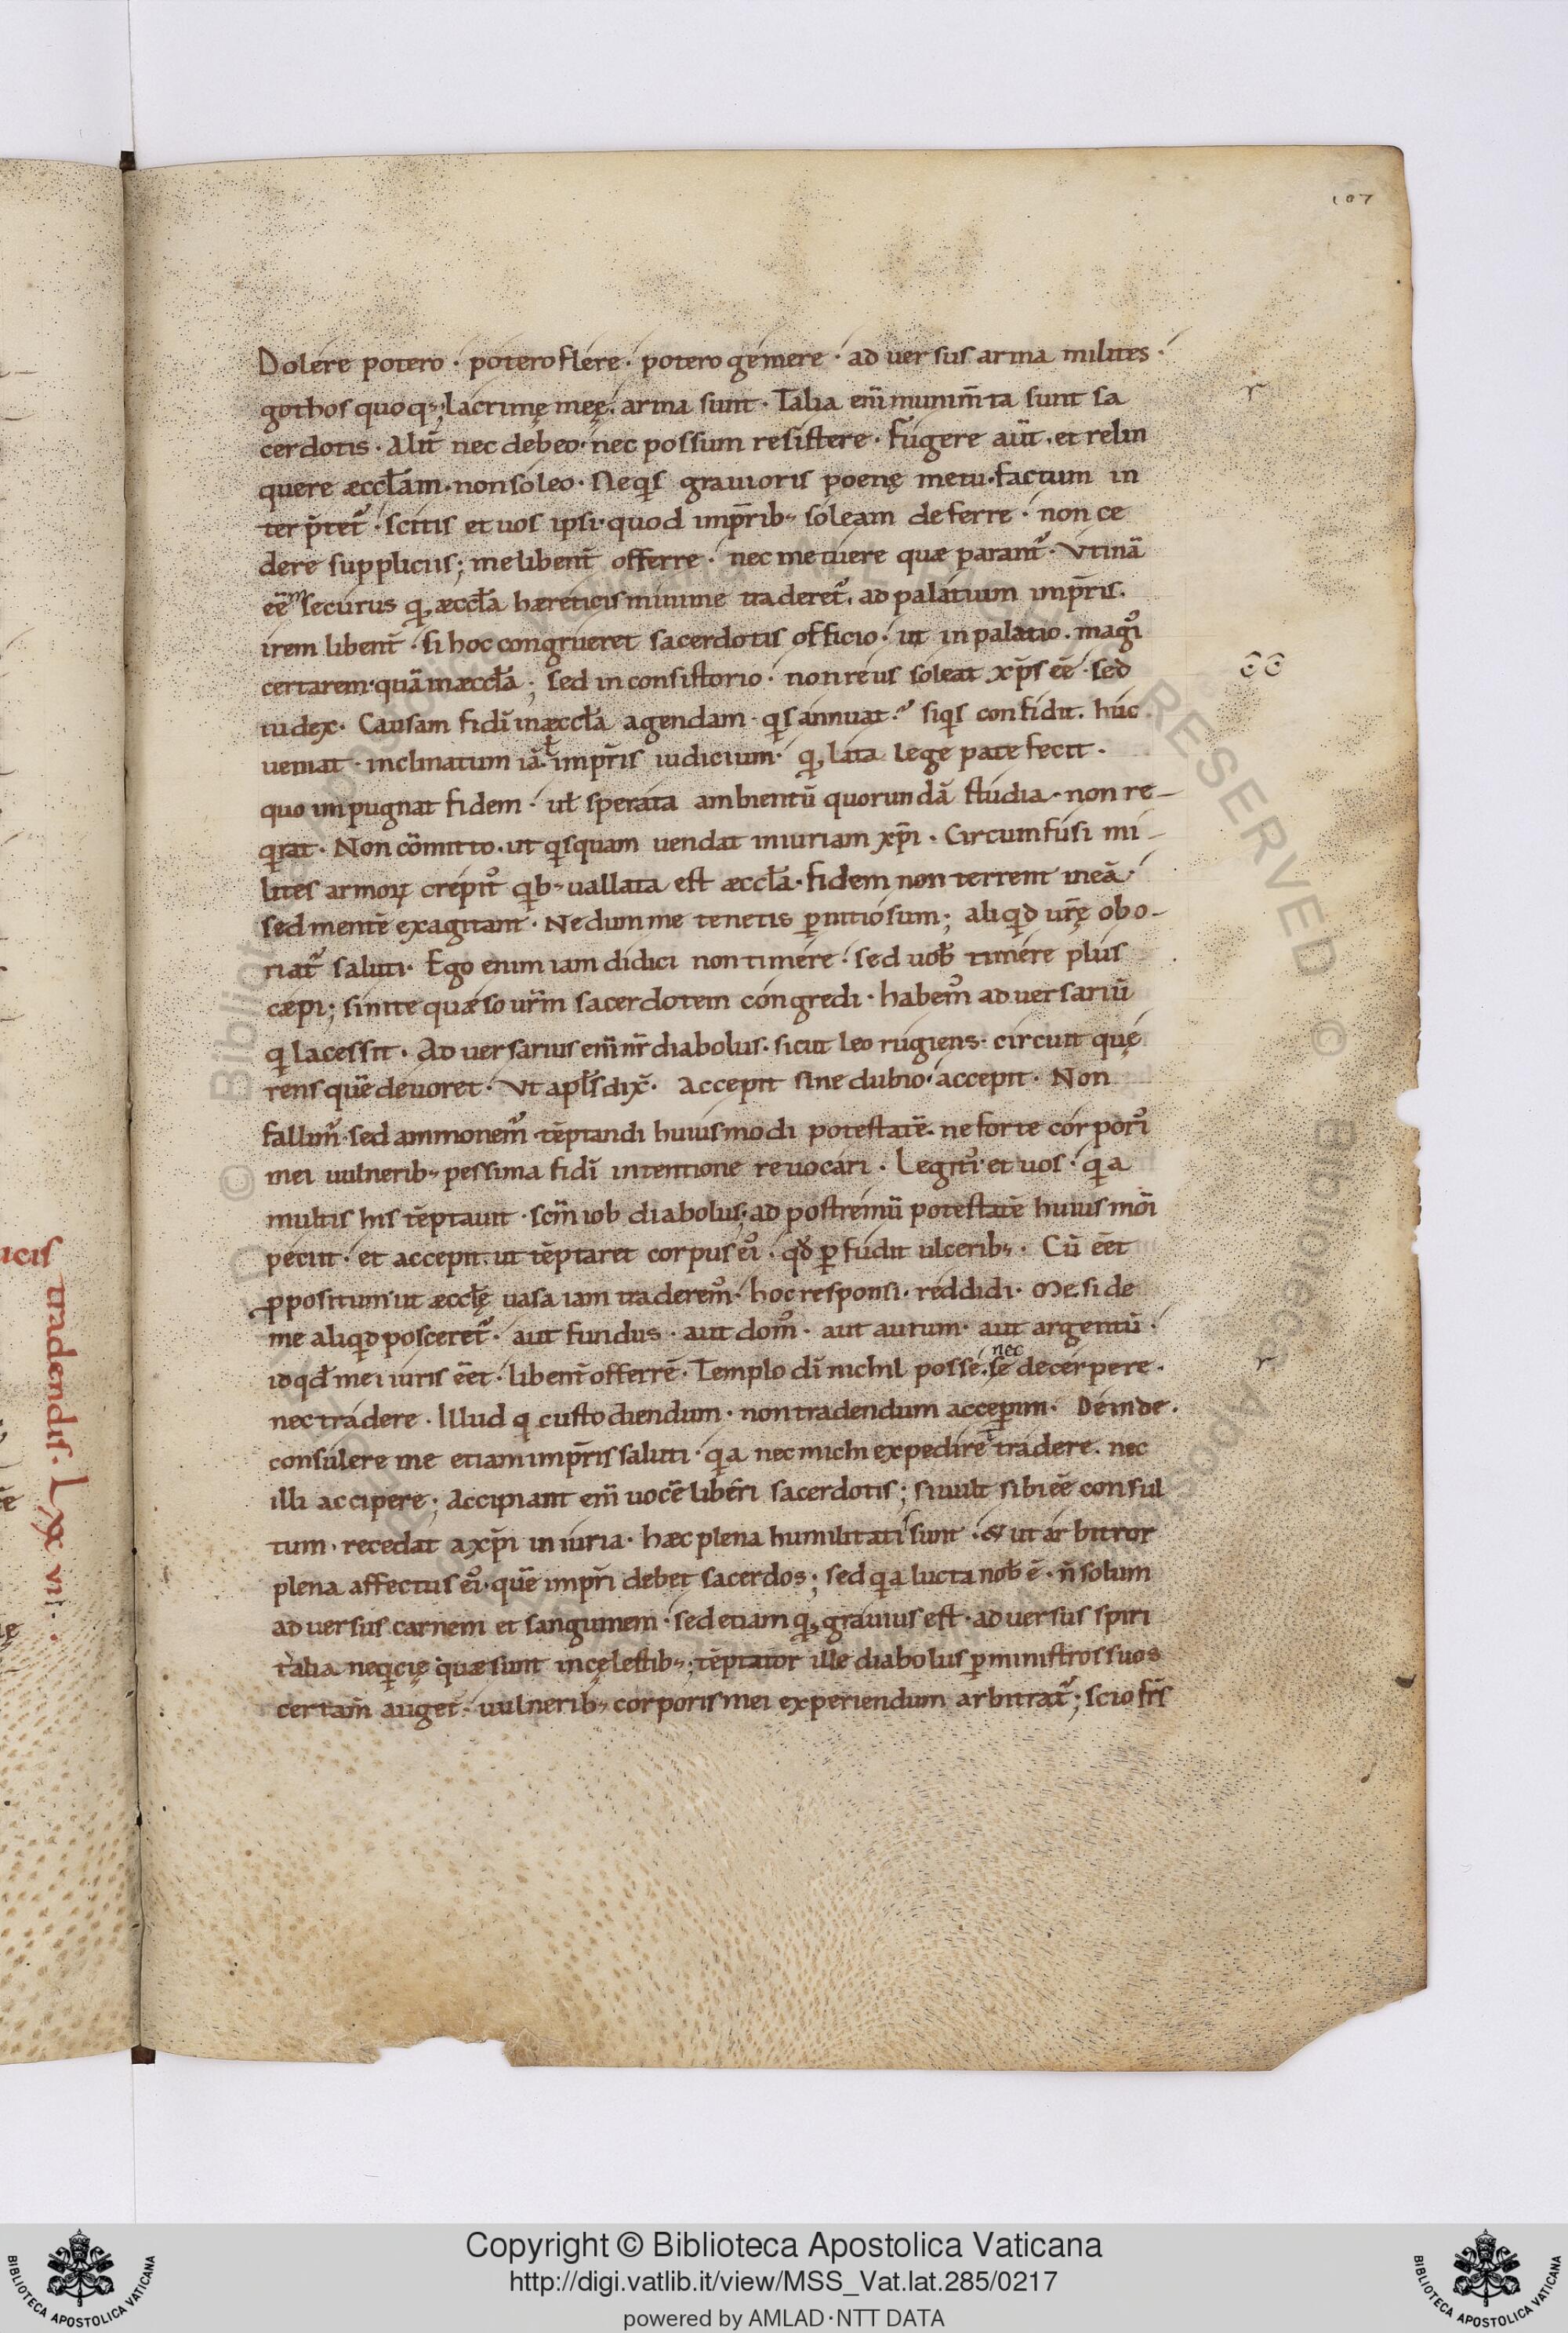 107
Dolere potero · potero flere · potero gemere · aduersus arma milites ·
gothos quoq; lacrimę meę · arma sunt · Talia eni᷑ munim̄ta sunt sa
cerdotis · Alit̄ nec debeo · nec possum resistere · fugere aut̄ · et relin
quere æccl̄am · non soleo · Neqis grauioris poenę metu · factum in
terp̄tet᷑ · scitis et uos ipsi · quod imp̄rib; soleam deferre · non ce
dere suppliciis; me libent̄ offerre · nec metuere quæ parant᷑ · Vtinā
eē᷑m securus q, æccl̄a hæreticis minime traderet᷑ · ad palatium imp̄ris ·
irem libent̄ · si hoc congrueret sacerdotis officio · ut in palatio · magꝰ
certarem · quā in æccl̄a ; sed in consistorio · non reus soleat xp̄s eē · sed
iudex · Causam fidi᷑ in æccl̄a agendam · qis annuat ? siqis confidit · huc
ueniat · inclinatum iā · imp̄ris iudicium · q, lata lege patefecit ·
quo impugnat fidem · ut sperata ambientū quorundā studia · non re-
qirat · Non cōmitto · ut qisquam uendat iniuriam xp̄i · Circumfusi mi-
lites armoꝝ crepitꝰ qib; uallata est æccl̄a · fidem non terrent meā ·
sed mentē exagitant · Ne dum me tenetis ꝑnitiosum; aliqid ur̄ę obo-
riat᷑ saluti · Ego enim iam didici non timere · sed uob̄ timere plus
cæpi; sinite quæso ur̄m sacerdotem congredi · habemꝰ aduersariū
qi lacessit · Aduersarius eni᷑ nr̄ diabolus · sicut leo rugiens · circuit quę
rens quē deuoret · Vt apl̄s dix̄ · Accepit sine dubio · accepit · Non
fallim᷑ · sed ammonem᷑ · tēptandi huiusmodi potestatē · ne forte corporꝰ
mei uulnerib; pessima fidi᷑ intentione reuocari · Legitꝰ et uos · qia
multis his tēptauit · sc̄m iob diabolus; ad postremū potestatē huius mōi
petiit · et accepit · ut tēptaret corpus eiꝰ · qđ ꝑfudit ulcerib; · Cū eēt
ꝓpositum · ut æccl̄ę uasa iam traderemꝰ · hoc responsi · reddidi · Me si de
me aliqid posceret᷑ · aut fundus · aut domꝰ · aut aurum · aut argentū ·
id qđ mei iuris eēt · libent̄ offerrē · Templo di᷑ nichil posse · nec se decerpere ·
nec tradere · Illud qi custodiendum · non tradendum acceperim · Deinde ·
consulere me etiam imp̄ris saluti · qia nec michi expediret tradere · nec
illi accipere; Accipiant eni᷑ uocē liberi sacerdotis; si uult sibi eē consul
tum · recedat a xp̄i iniuria · hæc plena humilitatis sunt · & ut arbitror
plena affectus eiꝰ · quē imp̄ri debet sacerdos; sed qia lucta nob̄ ē · n̄ solum
aduersus carnem et sanguinem · sed etiam q, grauius est · aduersus spiri
talia neqicię quæ sunt in cęlestib; ; tēptator ille diabolus ꝑ ministros suos
certam̄ auget · uulnerib; corporis mei experiendum arbitrat᷑ ; scio fr̄s
r
r
tradendis · Lxx vi · ·
Copyright © Biblioteca Apostolica Vaticana
http://digi.vatlib.it/view/MSS_Vat.lat.285/0217
powered by AMLAD · NTT DATA
BIBLIOTECA APOSTOLICA VATICANA
BIBLIOTECA APOSTOLICA VATICANA